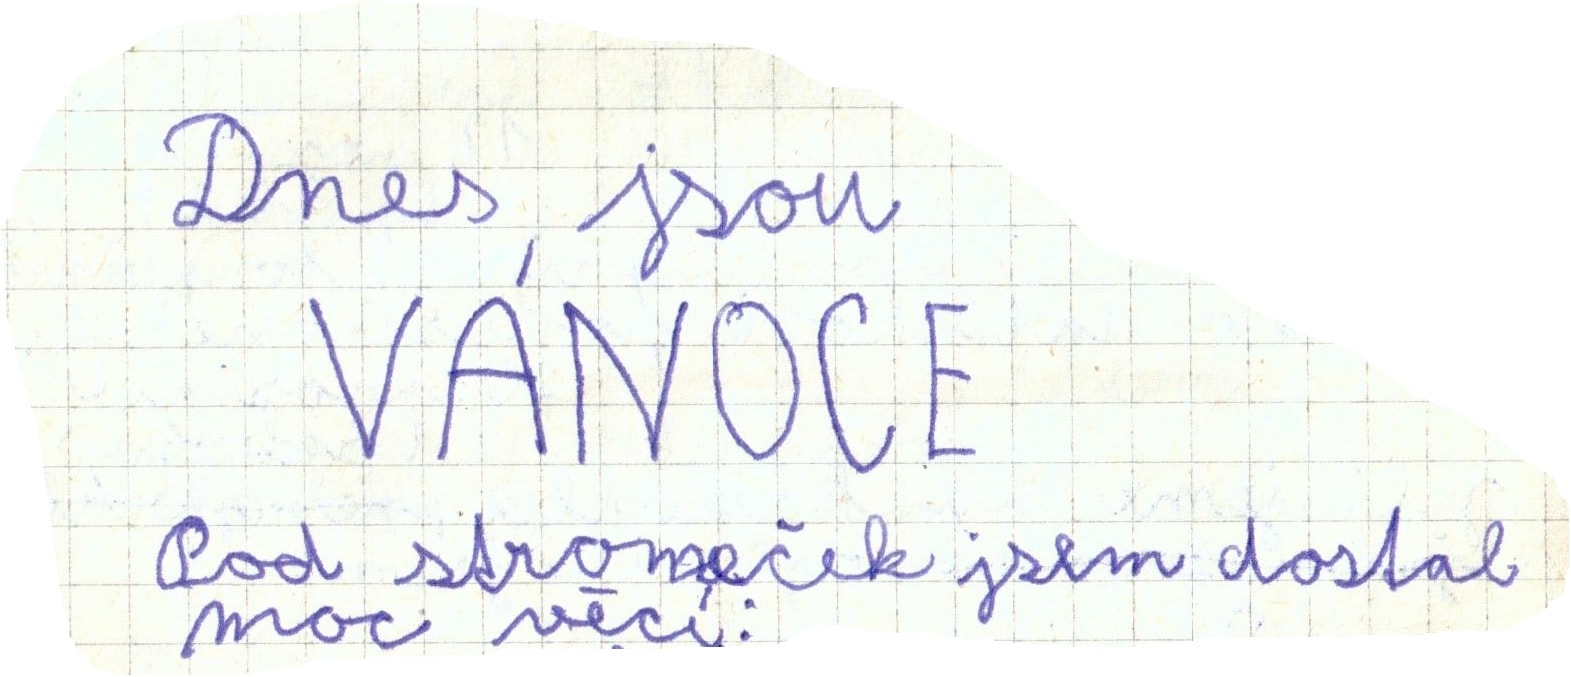 Dnes jsou
VÁNOCE
Pod stromeček jsem dostal
moc věcí: